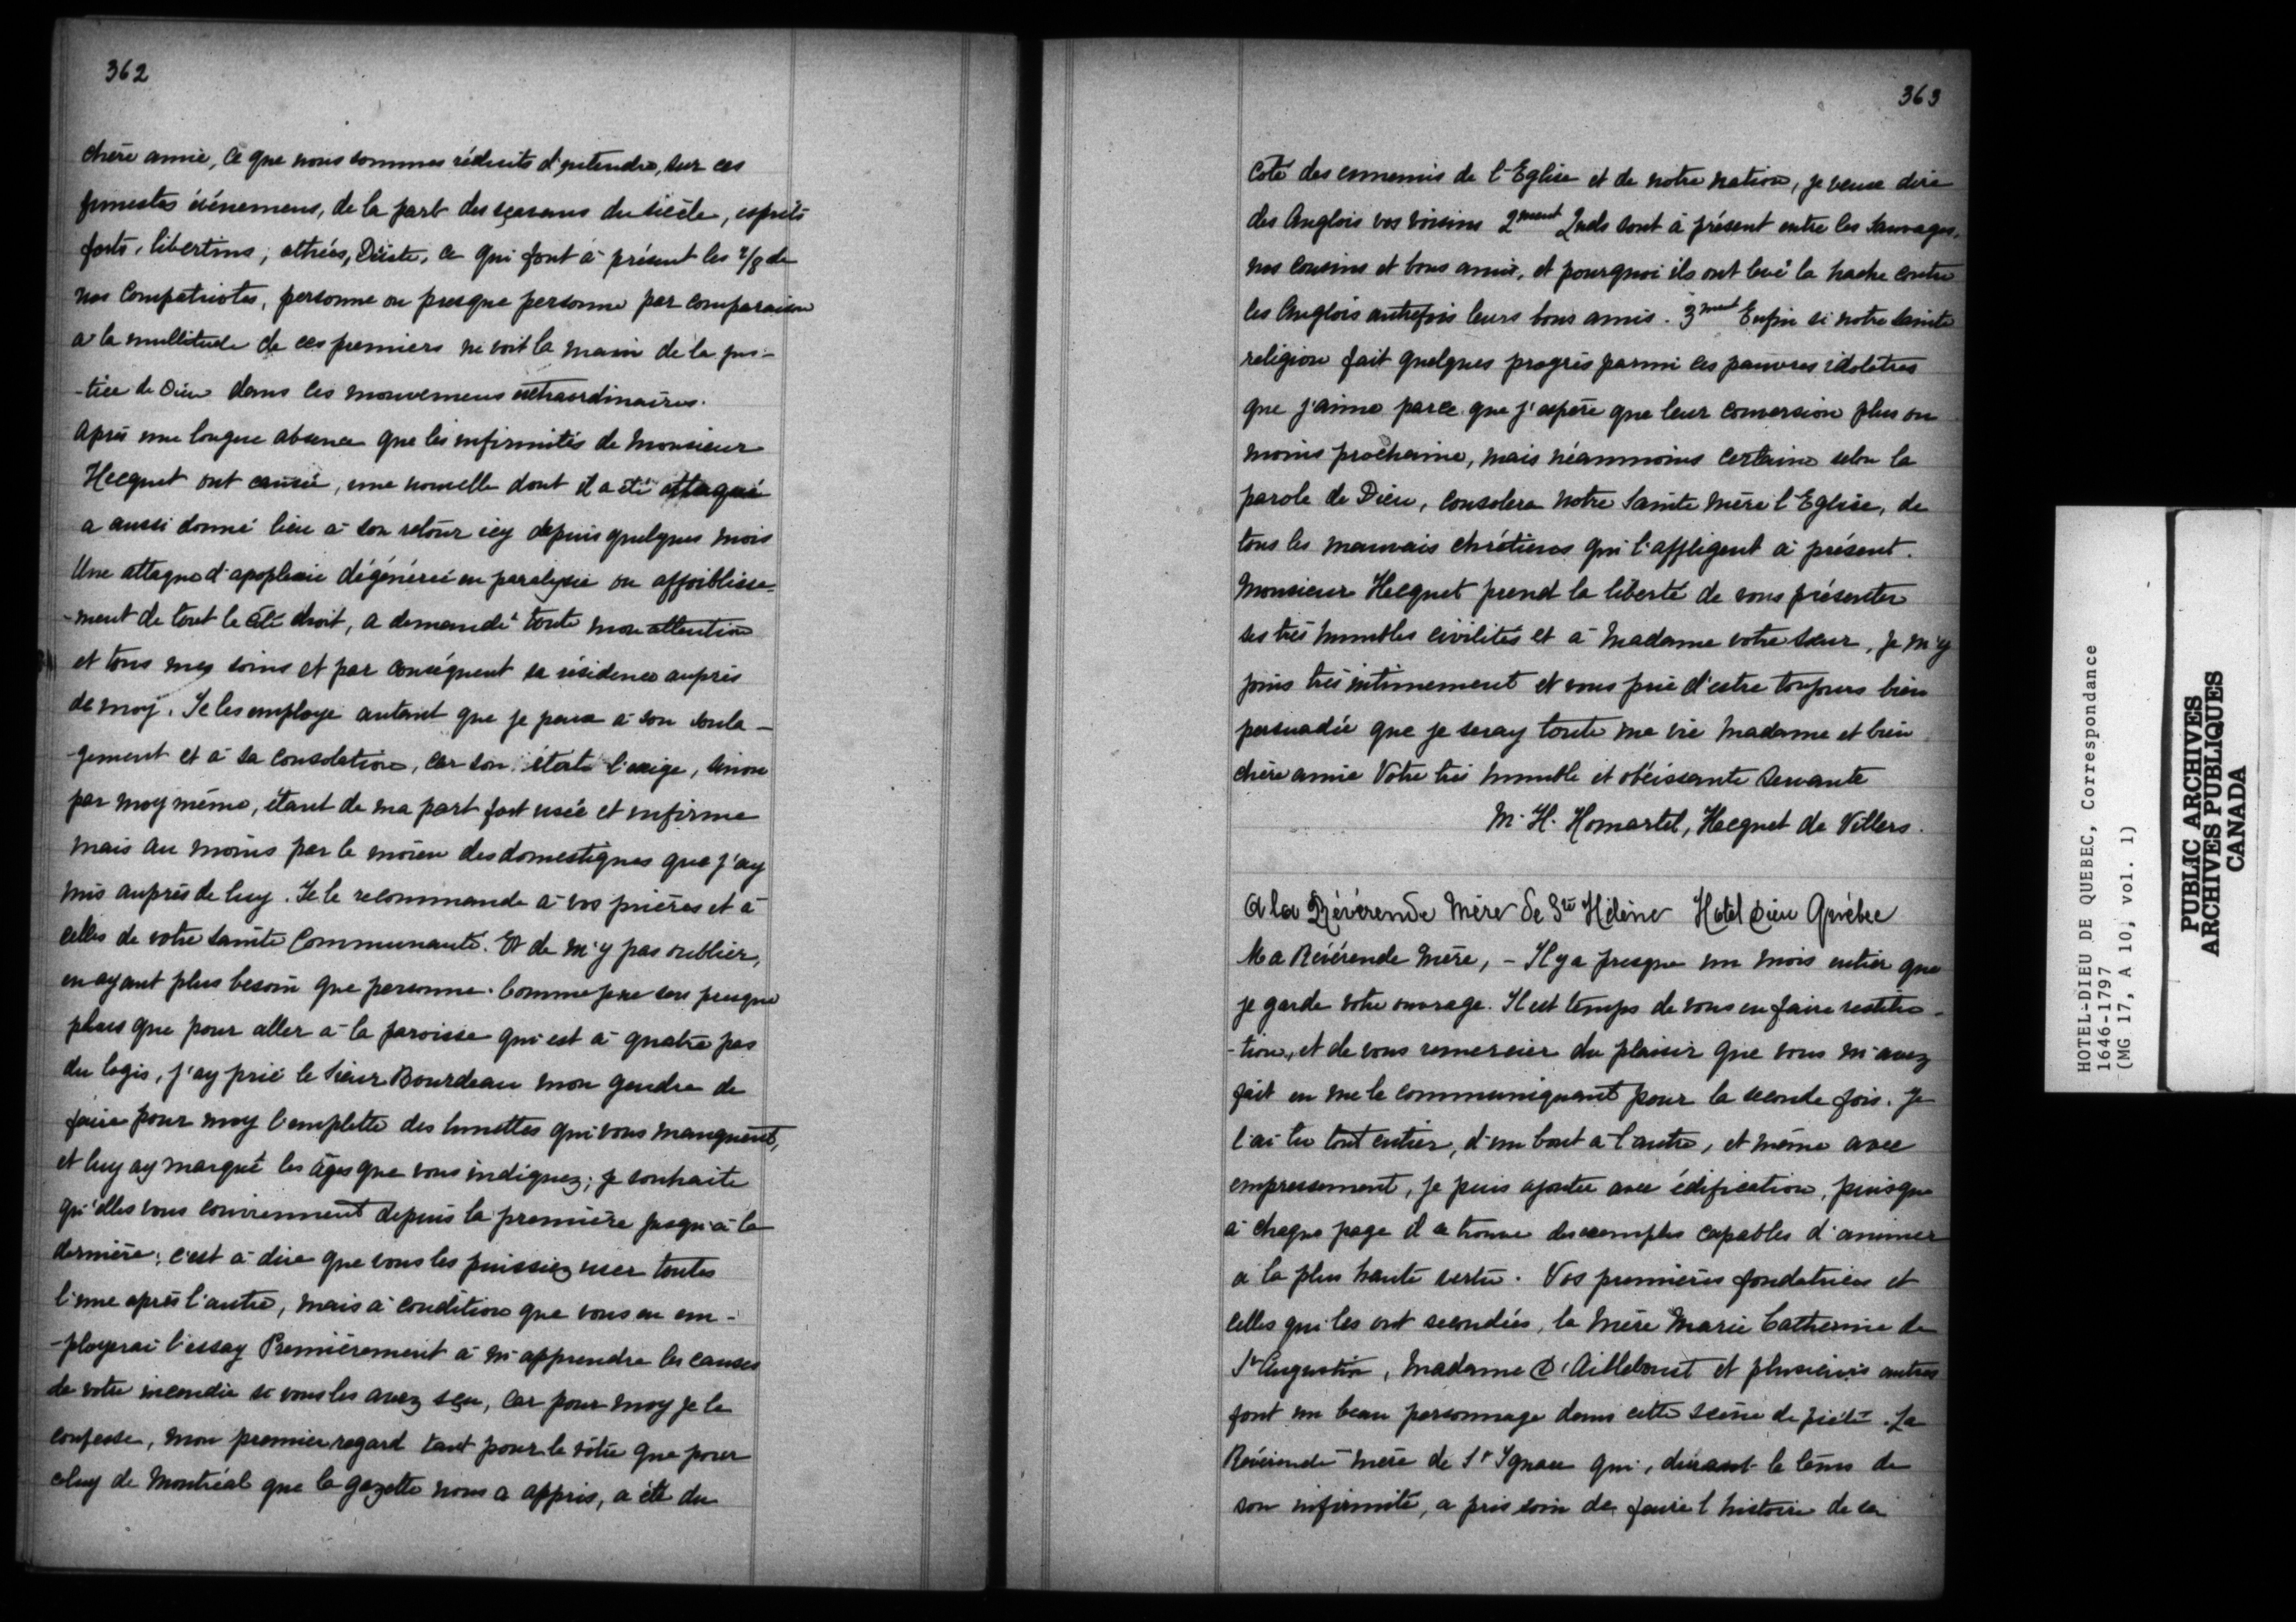 362
chère amie, ce que nous sommes réduits d'entendre, sur ces
funestes événemens, de la part des sçavans du siècle, esprits
forts, libertins, athées, Déiste, ce qui font à présent les 7/8 de
nos compatriotes, personne ou presque personne par comparaison
a la multitude de ces premiers ne voit la main de la jus-
-tice de Dieu dans ces mouvemens extraordinaires.
Après une longue absence que les infirmités de Monsieur
Hecquet ont causée, une nouvelle dont il a été attaqué
a aussi donné lieu à son retour icy depuis quelques mois
Une attaque d'apoplexie dégénérée en paralysie ou affoiblisse-
-ment de tout le côté droit, a demandé toute mon attention
et tous mes soins et par conséquent sa résidence auprès
de moy. Je les employe autant que je peux à son soula-
-gement et à sa consolation, car son état l'exige, sinon
par moy même, étant de ma part fort usée et infirme
mais au moins par le moien des domestiques que j'ay
mis auprès de luy. Je le recommande à vos prières et à
celles de votre sainte Communauté. Et de m'y pas oublier,
en ayant plus besoin que personne. Comme je ne sors presque
plus que pour aller à la paroisse qui est à quatre pas
du logis, j'ay prié le sieur Bourdeau mon gendre de
faire pour moy l'emplette des lunettes qui vous manquent,
et luy ay marqué les âges que vous indiquez; je souhaite
qu'elles vous conviennent depuis la première jusqu'à la
dernière; c'est à dire que vous les puissiez user toutes
l'une après l'autre, mais à condition que vous en em-
-ployerai l'essay Premièrement à m'apprendre les causes
de votre incendie si vous les avez sçu, car pour moy je le
confesse, mon premier regard tant pour le vôtre que pour
celuy de Montréal que la gazette nous a appris, a été du
363
coté des ennemis de l'Eglise et de notre nation, je veux dire
des Anglois vos voisins 2ment Quels sont à présent entre les Sauvages,
nos cousins et bons amis, et pourquoi ils ont levé la hache contre
les Anglois autrefois leurs bons amis. 3ment Enfin si notre sainte
religion fait quelques progrès parmi ces pauvres idolâtres
que j'aime parce que j'espère que leur conversion plus ou
moins prochaine, mais néanmoins certaine selon la
parole de Dieu, consolera notre Sainte mère l'Eglise, de
tous les mauvais chrétiens qui l'affligent à présent.
Monsieur Hecquet prend la liberté de vous présenter
ses très humbles civilités et à Madame votre sœur, je m'y
joins très intimement et vous prie d'estre toujours bien
persuadée que je seray toute ma vie Madame et bien
chère amie Votre très humble et obéissante Servante
M. H. Homartel, Hecquet de Villers.
A la Révérende Mère de Ste Hélène Hotel Dieu Québec
Ma Révérende Mère, - Il y a presque un mois entier que
je garde votre ouvrage. Il est temps de vous en faire restitu-
-tion, et de vous remercier du plaisir que vous m'avez
fait en me le communiquant pour la seconde fois. Je
l'ai lu tout entier, d'un bout a l'autre, et même avec
empressement, je puis ajouter avec édification, puisque
à chaque page il se trouve des exemples capables d'animer
a la plus haute vertu. Vos premières fondatrices et
celles qui les ont secondées, la Mère Marie Catherine de
St Augustin, Madame D'Ailleboust et plusieurs autres
font un beau personnage dans cette scène de piété. La
Révérende mère de St Ignace qui, durant le tems de
son infirmité, a pris soin de faire l'histoire de sa
HOTEL-DIEU DE QUEBEC, Correspondance
1646-1797
(MG 17, A 10, vol. 1)
PUBLIC ARCHIVES
ARCHIVES PUBLIQUES
CANADA